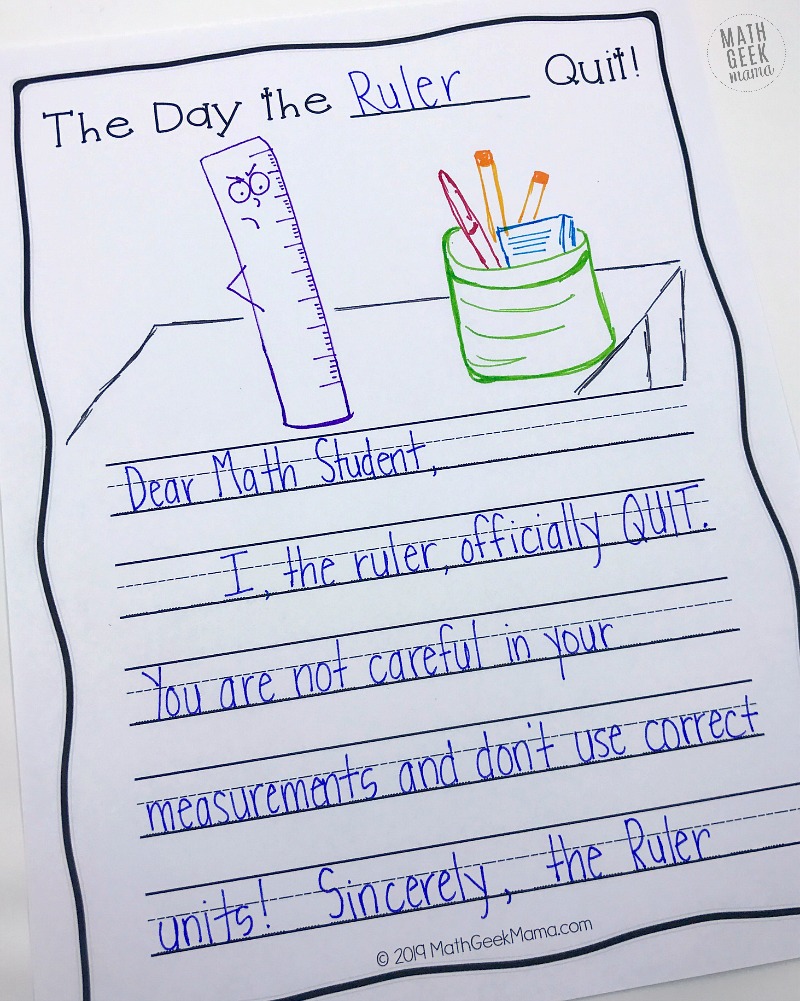 MATH
GEEK
mama
The Day the Ruler Quit!
Dear Math Student,
I, the ruler, officially QUIT.
You are not careful in your
measurements and don't use correct
units! Sincerely, the Ruler
© 2019 MathGeekMama.com